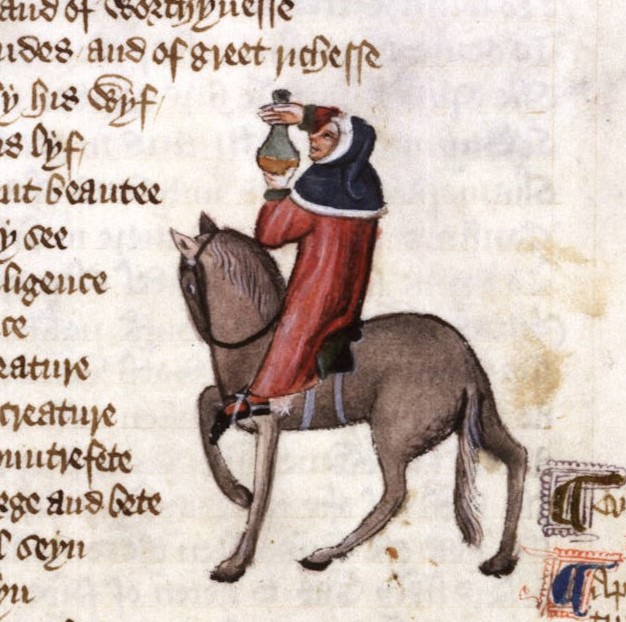 and of worthynesse
ndes and of greet richesse
y his wyf
is lyf
nt beautee
y see
ligence
ce
rature
creature
ountrefete
ege and bete
l seyn
yn
Ap